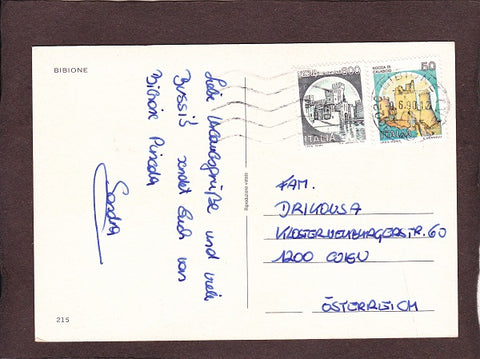 BIBIONE
Liebe Urlaubsgrüße und viele
Bussi's sendet Euch von
Bibione Pineda
Sandra
215
Riproduzione vietata
800
ITALIA
ROCCA DI
CALASCIO
50
ITALIA
6.90.12
FAM.
DRIKOUSA
KLOSTERNEUBURGERSTR. 60
1200 WIEN
ÖSTERREICH